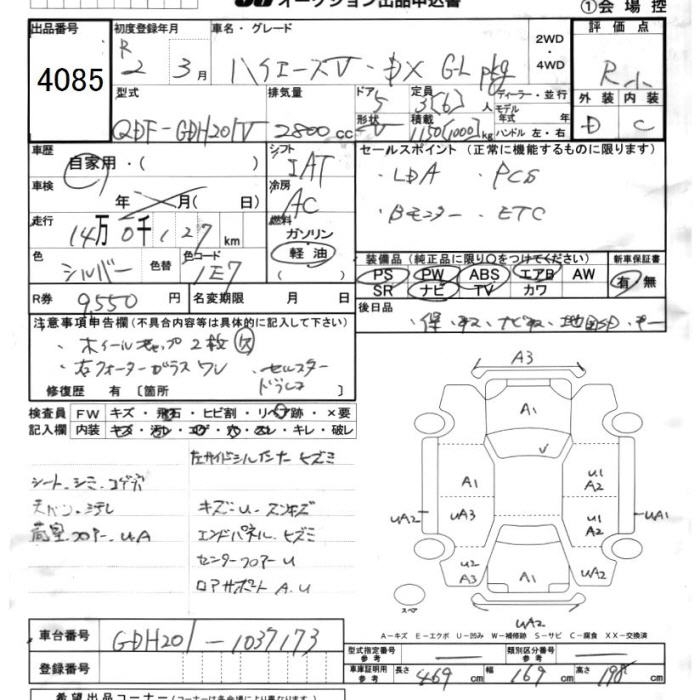 オークション出品申込書
①会場控
出品番号
4085
初度登録年月
R 2 3月
車名・グレード
ハイエースV・DX GL pkg
2WD
・
4WD
評価点
R小
外装 内装
D C
型式
QDF-GDH201V
排気量
2800cc
ドア 5
形状 V
定員 3(6)人
積載 1150(1000)kg
ディーラー・並行
モデル年式 年
ハンドル 左・右
車歴
自家用・( )
シフト
IAT
車検
年 月( 日)
冷房
AC
走行
14万0千127km
燃料
ガソリン
軽油
( )
色
シルバー
色替
色コード
1E7
R券
9,550円
名変期限 月 日
セールスポイント (正常に機能するものに限ります)
・LDA ・PCS
・Bモニター ・ETC
装備品 (純正品に限り○をつけてください)
PS PW ABS エアB AW
SR ナビ TV カワ
新車保証書
有・無
後日品
・保・取・ナビ取・地図SD・キー
注意事項申告欄(不具合内容等は具体的に記入して下さい)
・ホイールキャップ2枚欠
・右クォーターガラスワレ ・セルスター
ドラレコ
修復歴 有 〔箇所
検査員
記入欄
FW キズ・飛石・ヒビ割・リペア跡・×要
内装 キズ・汚レ・エグ・穴・スレ・キレ・破レ
左サイドシルインナーヒズミ
シート・シミ・コゲ穴
天バン・シテレ
荷室フロアーU.A
キズ・U・スンキズ
エンドパネルヒズミ
センターフロアーU
ロアサポートA.U
A3
A1
V
A1
UA3
U1
A2
U1
A2
UA2
UA1
U2
A3
A1
UA2
UA2
スペア
A-キズ E-エクボ U-凹み W-補修跡 S-サビ C-腐食 XX-交換済
車台番号
GDH201-1037173
登録番号
型式指定番号
参考
類別区分番号
参考
車庫証明用
参考
長さ 469cm 幅 169cm 高さ 198cm
希望出品コーナー